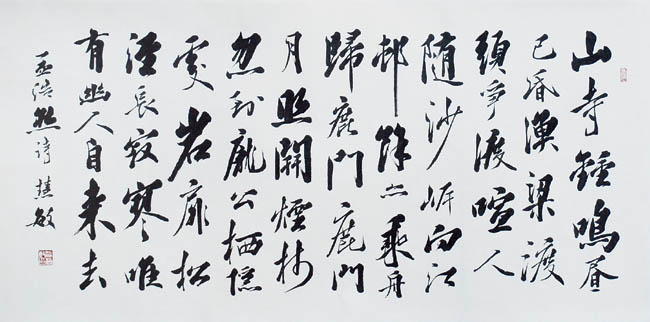 山寺鐘鳴昼
已昏漁梁渡
頭爭渡喧人
随沙岸向江
邨餘亦乘舟
歸鹿門鹿門
月照開煙樹
忽到龐公栖隱
處岩扉松
徑長寂寥唯
有幽人自来去
孟浩然詩 慧敏